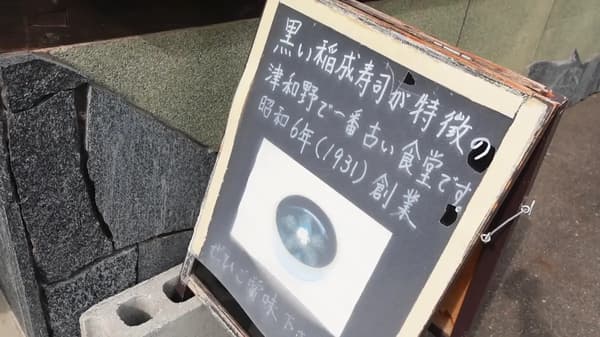 黒い稲成寿司が特徴の
津和野で一番古い食堂です
昭和6年(1931)創業
ぜひご賞味下